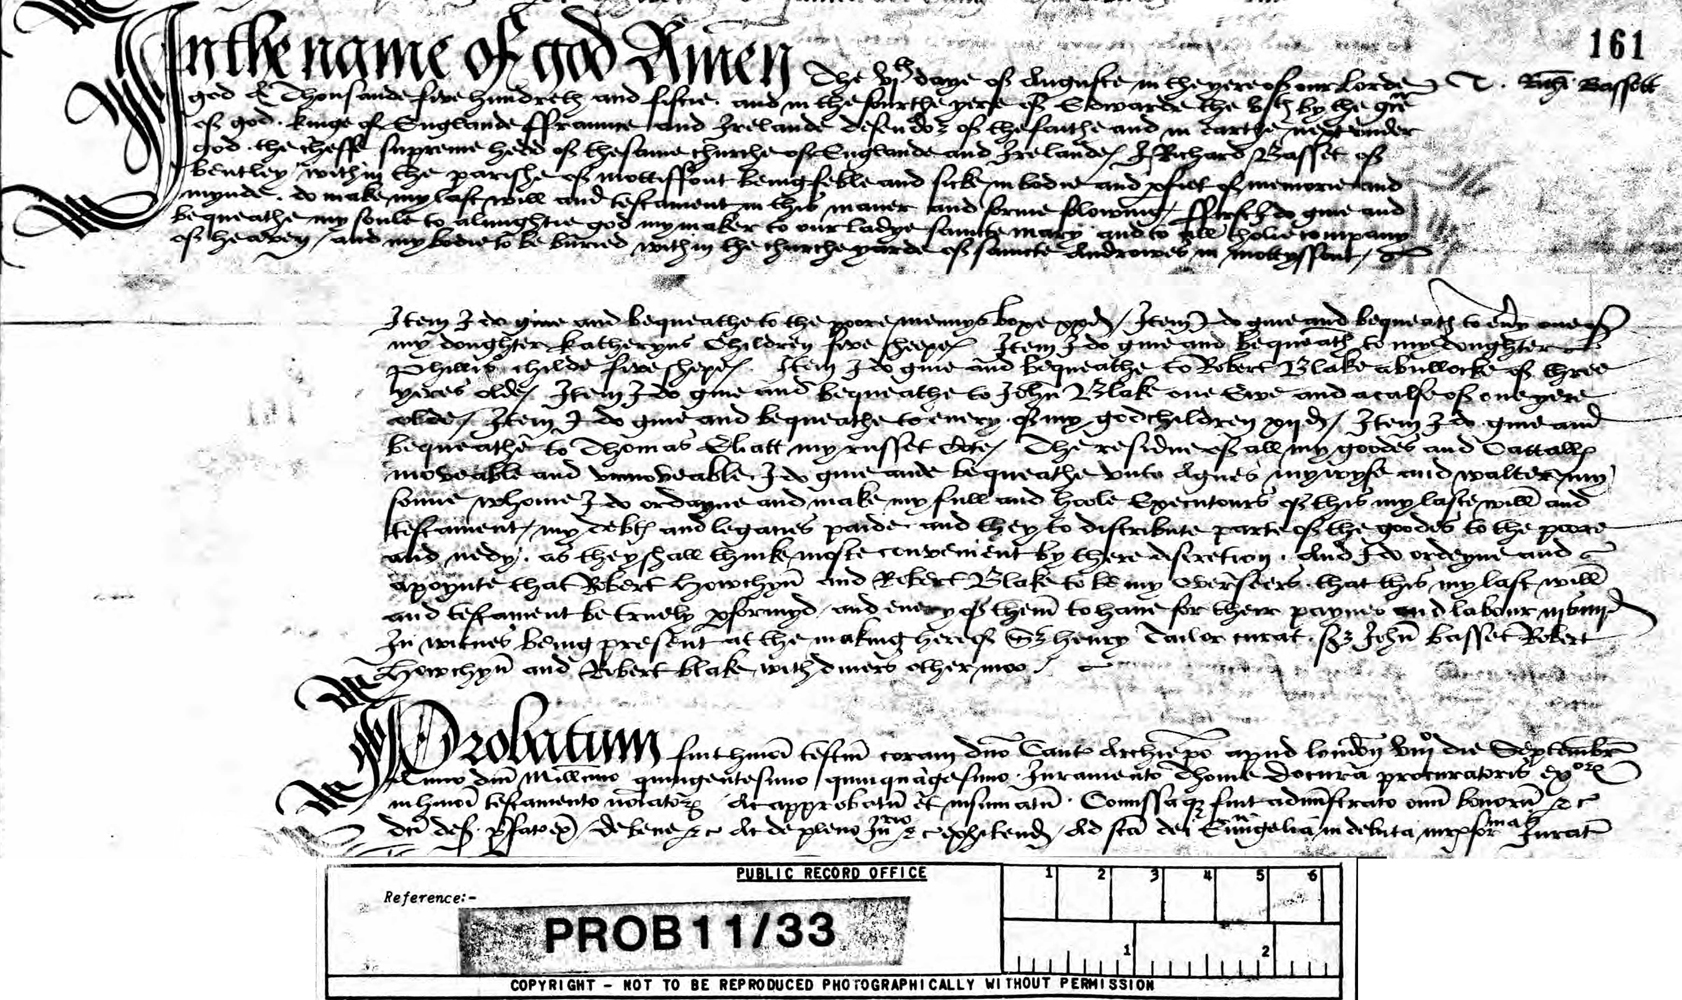 161
In the name of god Amen The vjth daye of Auguste in the yere of our Lorde
T. Richi Bassett
god A Thousande five hundreth and fiftie. and in the fourthe yere of Edwarde the vjth by the gr̃ce
of god. kinge of Englande ffraunce and Irelande defendor of the faithe and in earthe next under
god the cheff supreme hedd of the same churche of Englande and Irelande / I Richard Basset of
bentley within the parishe of mottisfont being feble and sicke in bodie and pfict of memorie and
mynde. do make my last will and testament in this maner and forme folowing / ffirst I do give and
bequeathe my soule to almightie god my maker to our Ladye saincte mary and to all tholie company
of heaven / and my bodie to be buried within the churche yarde of saincte Androwes in mottyssont /
Item I do give and bequeathe to the poore mennys boxe xxd / Item I do give and bequeath to eỹy one of
my doughter Katheryns Children five sheepe / Item I do give and bequeath to my doughter
Phillis childe five shepe / Item I do give and bequeathe to Robert Blake a bullocke of three
yeres olde / Item I do give and bequeathe to John Blake one Ewe and a calfe of one yere
olde / Item I do give and bequeathe to every of my godchildren xijd / Item I do give and
bequeathe to Thomas Eliatt my russet Cote / The residue of all my goodes and Cattalls
moveable and unmoveable I do give ande bequeathe unto Agnes my wyfe and walter my
sonne whome I do ordayne and make my full and hoole Executours of this my laste will and
testament / my debts and legacies paide and they to distribute parte of the goodes to the poore
and nedy. as they shall think moste convenient by there discretion. And I do ordeyne and
apoynte that Robert Howchyn and Robert Blake to be my Overseers. that this my last will
and testament be truely pformyd and every of them to have for their paynes and labour
In witnes being present at the making hereof Sr henry Tailor curat. Sr John basset Robert
Howchyn and Robert blake with divers other moo /
Probatum fuit hmoi testm̃ coram dno Cant̃ Archiepo apud london viijo die Septembr
Anno dm̃ Millimo quingentesimo quinquagesimo. Juramento Thome Docura procuratoris exorꝫ
in hmoi testamento noiatorꝫ Ac approbatũ et insinuatũ. Comissaqꝫ fuit admistraco oim̃ bonorũ &c
dc̃i def. pfato ex / de bene &c Ac de pleno Inrio &c exhibend / Ad sta dei Evangelia in debita iuris forma Iurat
PUBLIC RECORD OFFICE
1 2 3 4 5 6
Reference:-
PROB 11/33
1 2
COPYRIGHT - NOT TO BE REPRODUCED PHOTOGRAPHICALLY WITHOUT PERMISSION